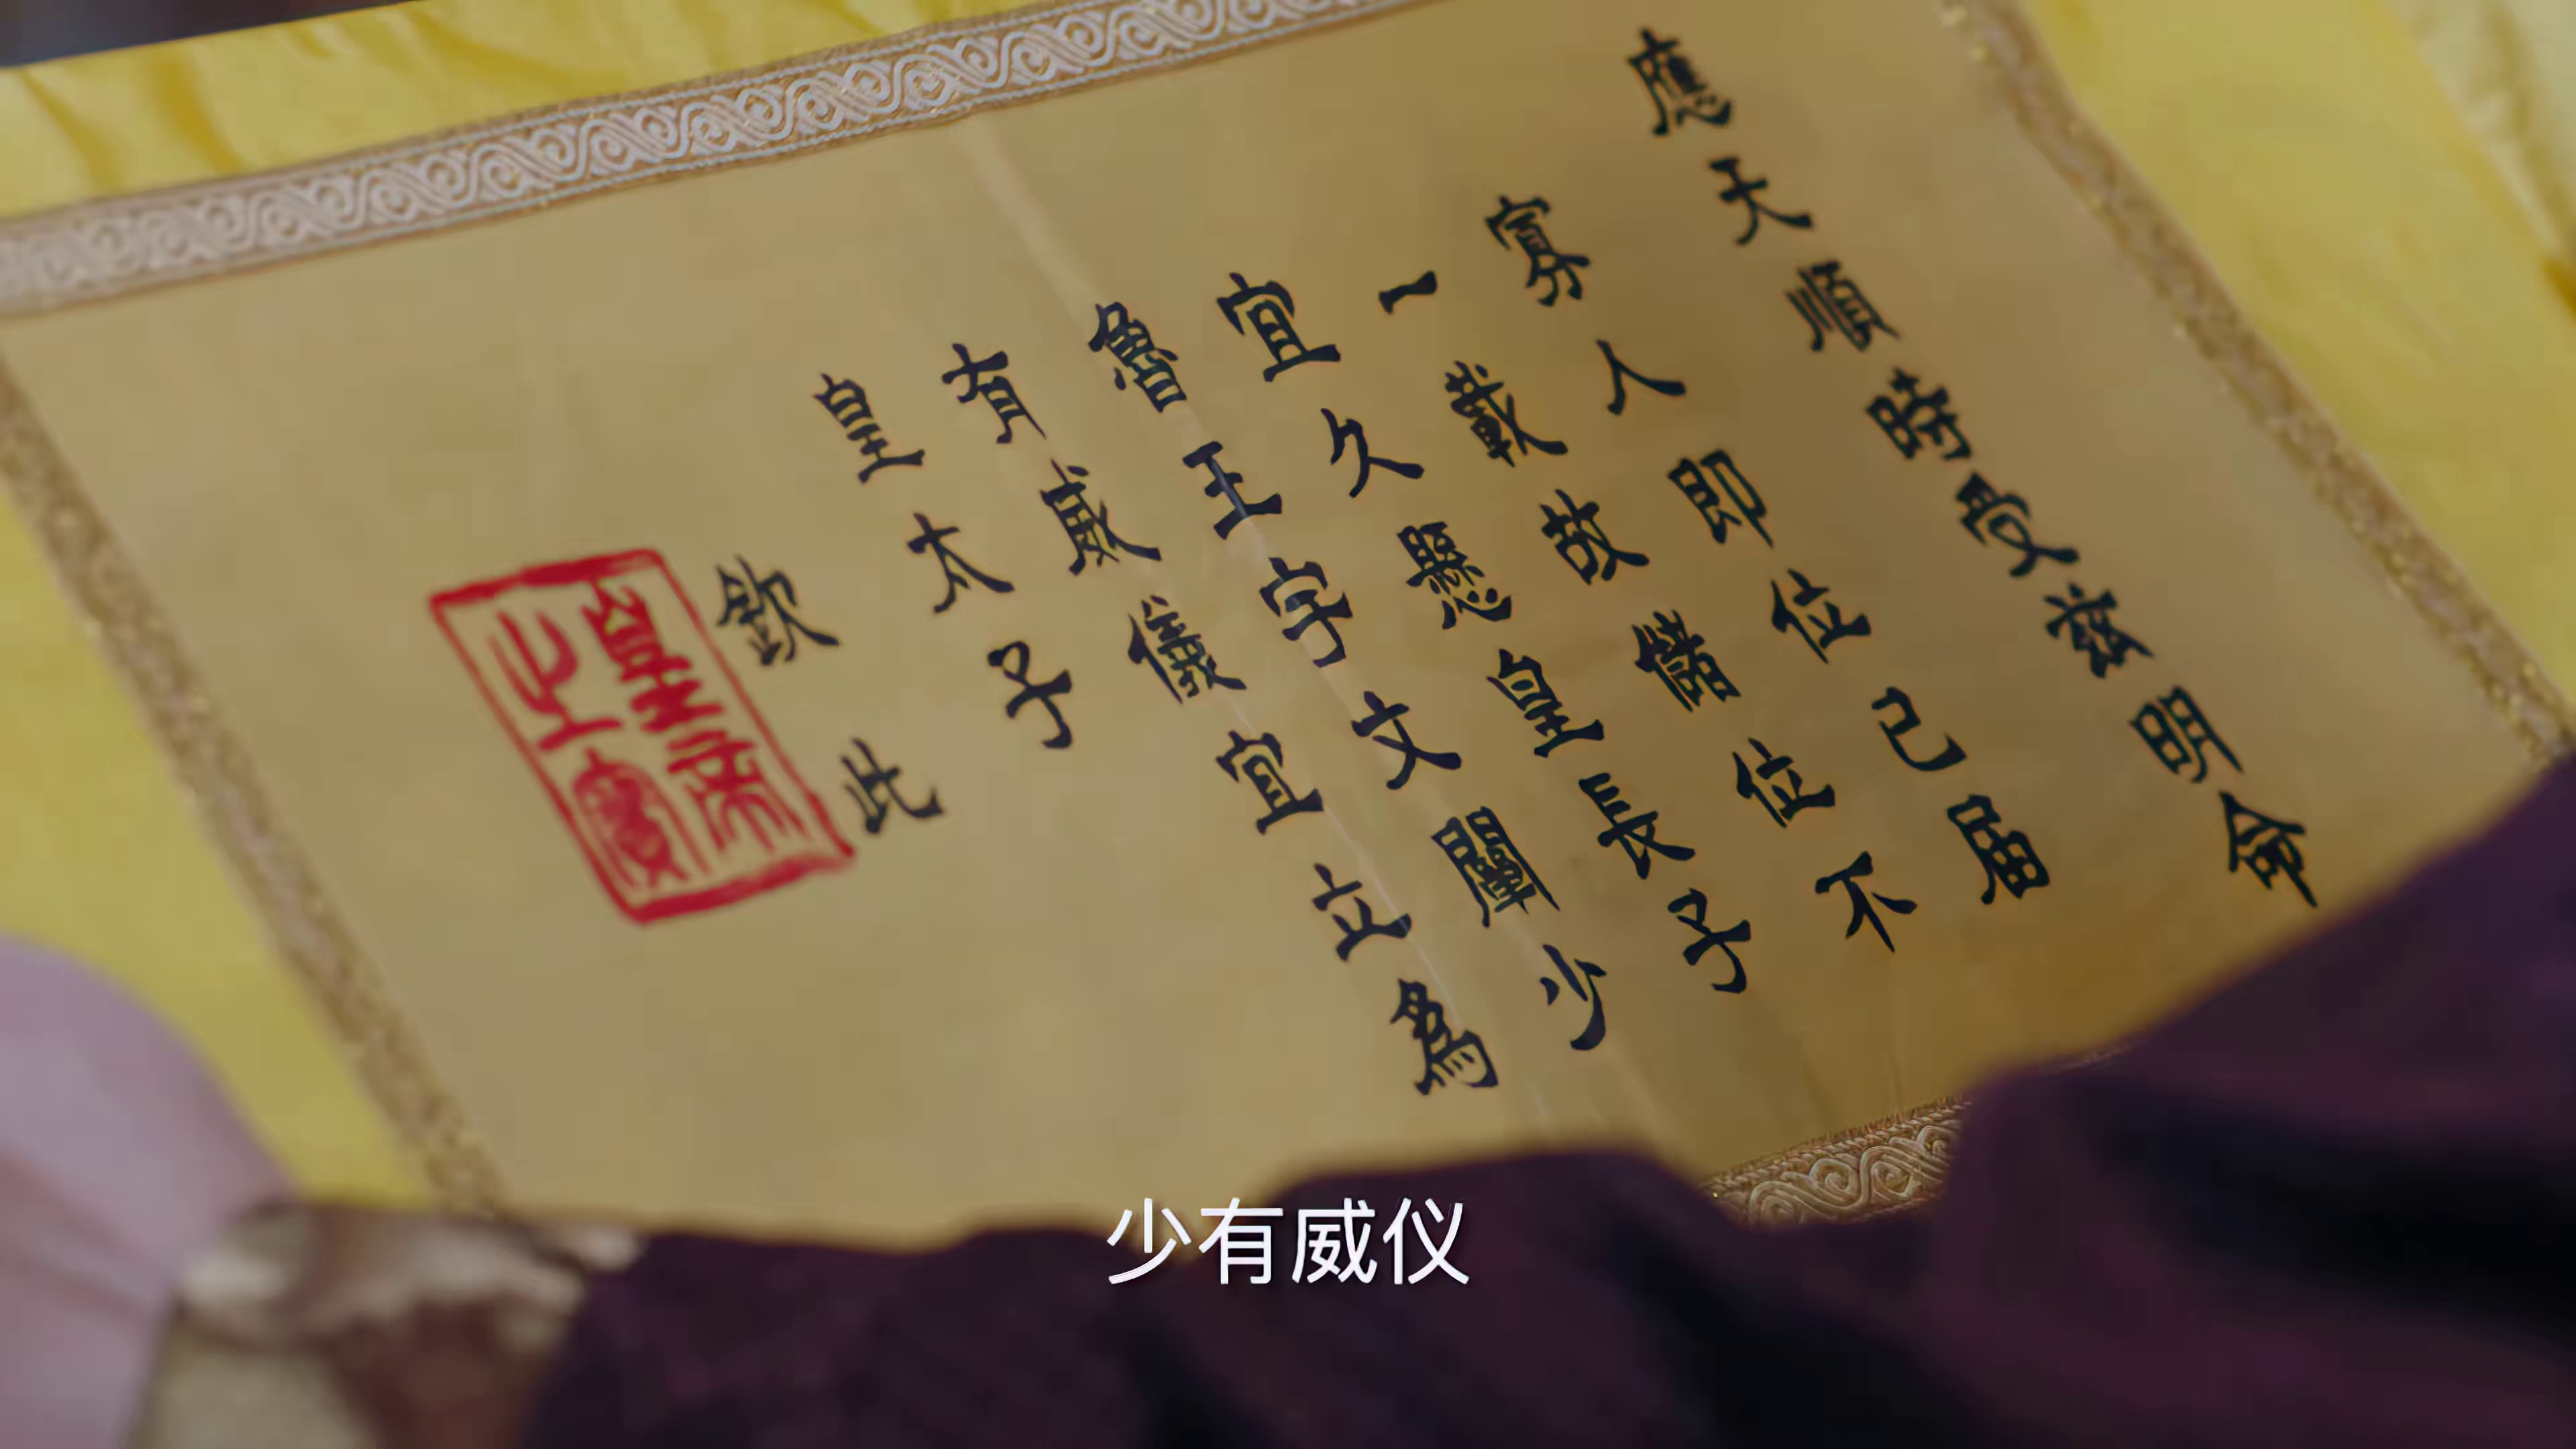 應天順時受茲明命
寡人即位已届
一載故儲位不
宜久懸皇長子
魯王宇文闡少
有威儀宜立為
皇太子
欽此
皇帝
之寶
少有威仪